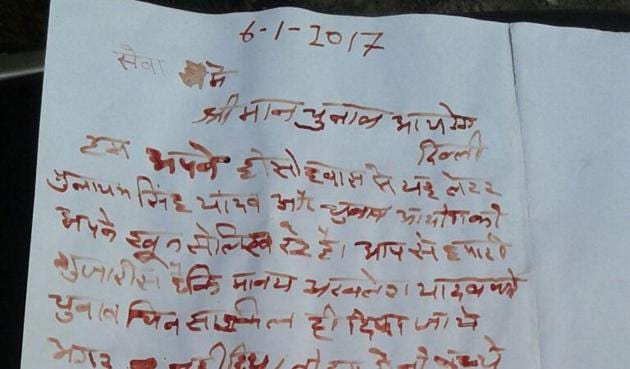 6-1-2017
सेवा मे
श्री मान चुनाव आयोग
दिल्ली
हम अपने होसो हवास से यह लेटर
मुलायम सिंह यादव और चुनाव आयोग को
अपने खून से लिख रहे है। आप से हमारी
गुजारीस है कि मानय अखलेश यादव को
चुनाव चिन साइकिल ही दिया जाये
अगर